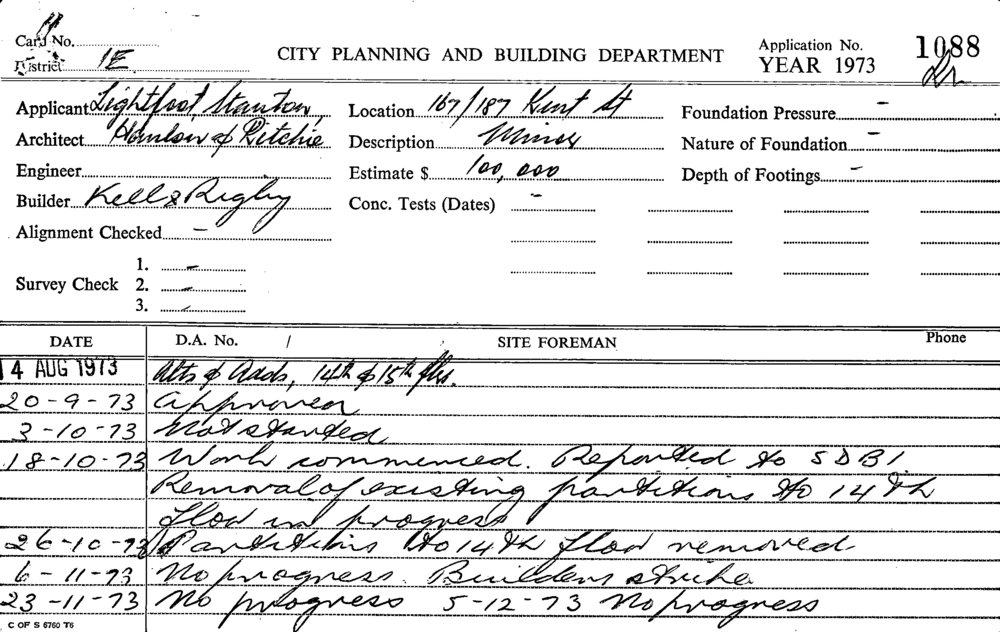 Card No.
District 1E
CITY PLANNING AND BUILDING DEPARTMENT
Application No. 1088
YEAR 1973
Applicant Lightfoot, Stanton,
Location 167/187 Kent St
Foundation Pressure -
Architect Hanlon & Ritchie
Description Minor
Nature of Foundation -
Engineer
Estimate $ 100,000
Depth of Footings -
Builder Kell & Rigby
Conc. Tests (Dates) -
Alignment Checked -
Survey Check 1. -
2. -
3. -
DATE D.A. No. / SITE FOREMAN Phone
14 AUG 1973 Alts & Adds, 14th & 15th flrs.
20-9-73 Approved
3-10-73 Not started
18-10-73 Work commenced. Reported to SDBI.
Removal of existing partitions to 14th
floor in progress
26-10-73 Partitions to 14th floor removed
6-11-73 No progress. Builders strike
23-11-73 No progress 5-12-73 No progress
C OF S 6760 T6